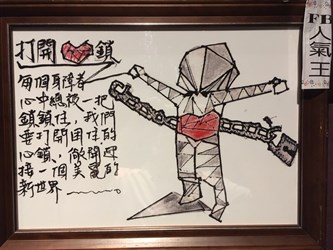 打開❤鎖
每個身障者
心中總被一把
鎖鎖住,我們
要打開困住的
心鎖、敞開迎
接一個美麗的
新世界
FB
人氣王